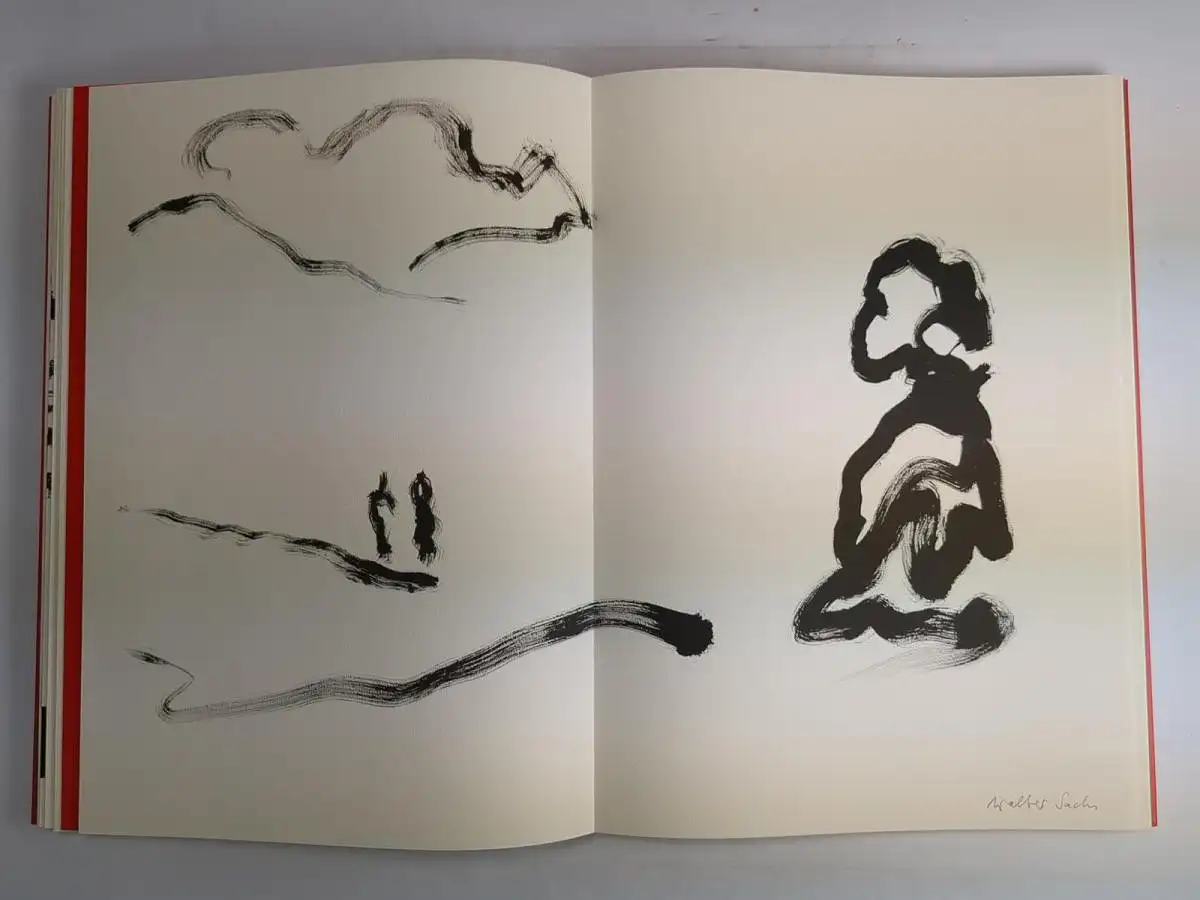 Walter Sachs